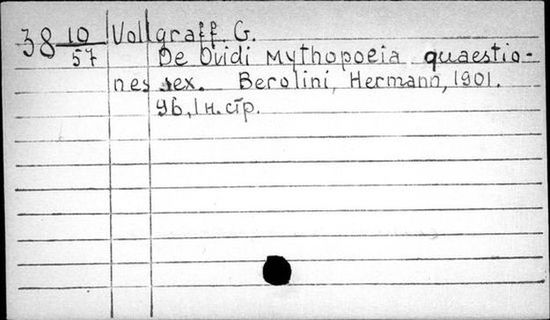 38 10/57 Vollgraff G.
De Ovidi mythopoeia quaestio-
nes sex. Berolini, Hermann, 1901.
96, 1 н. стр.